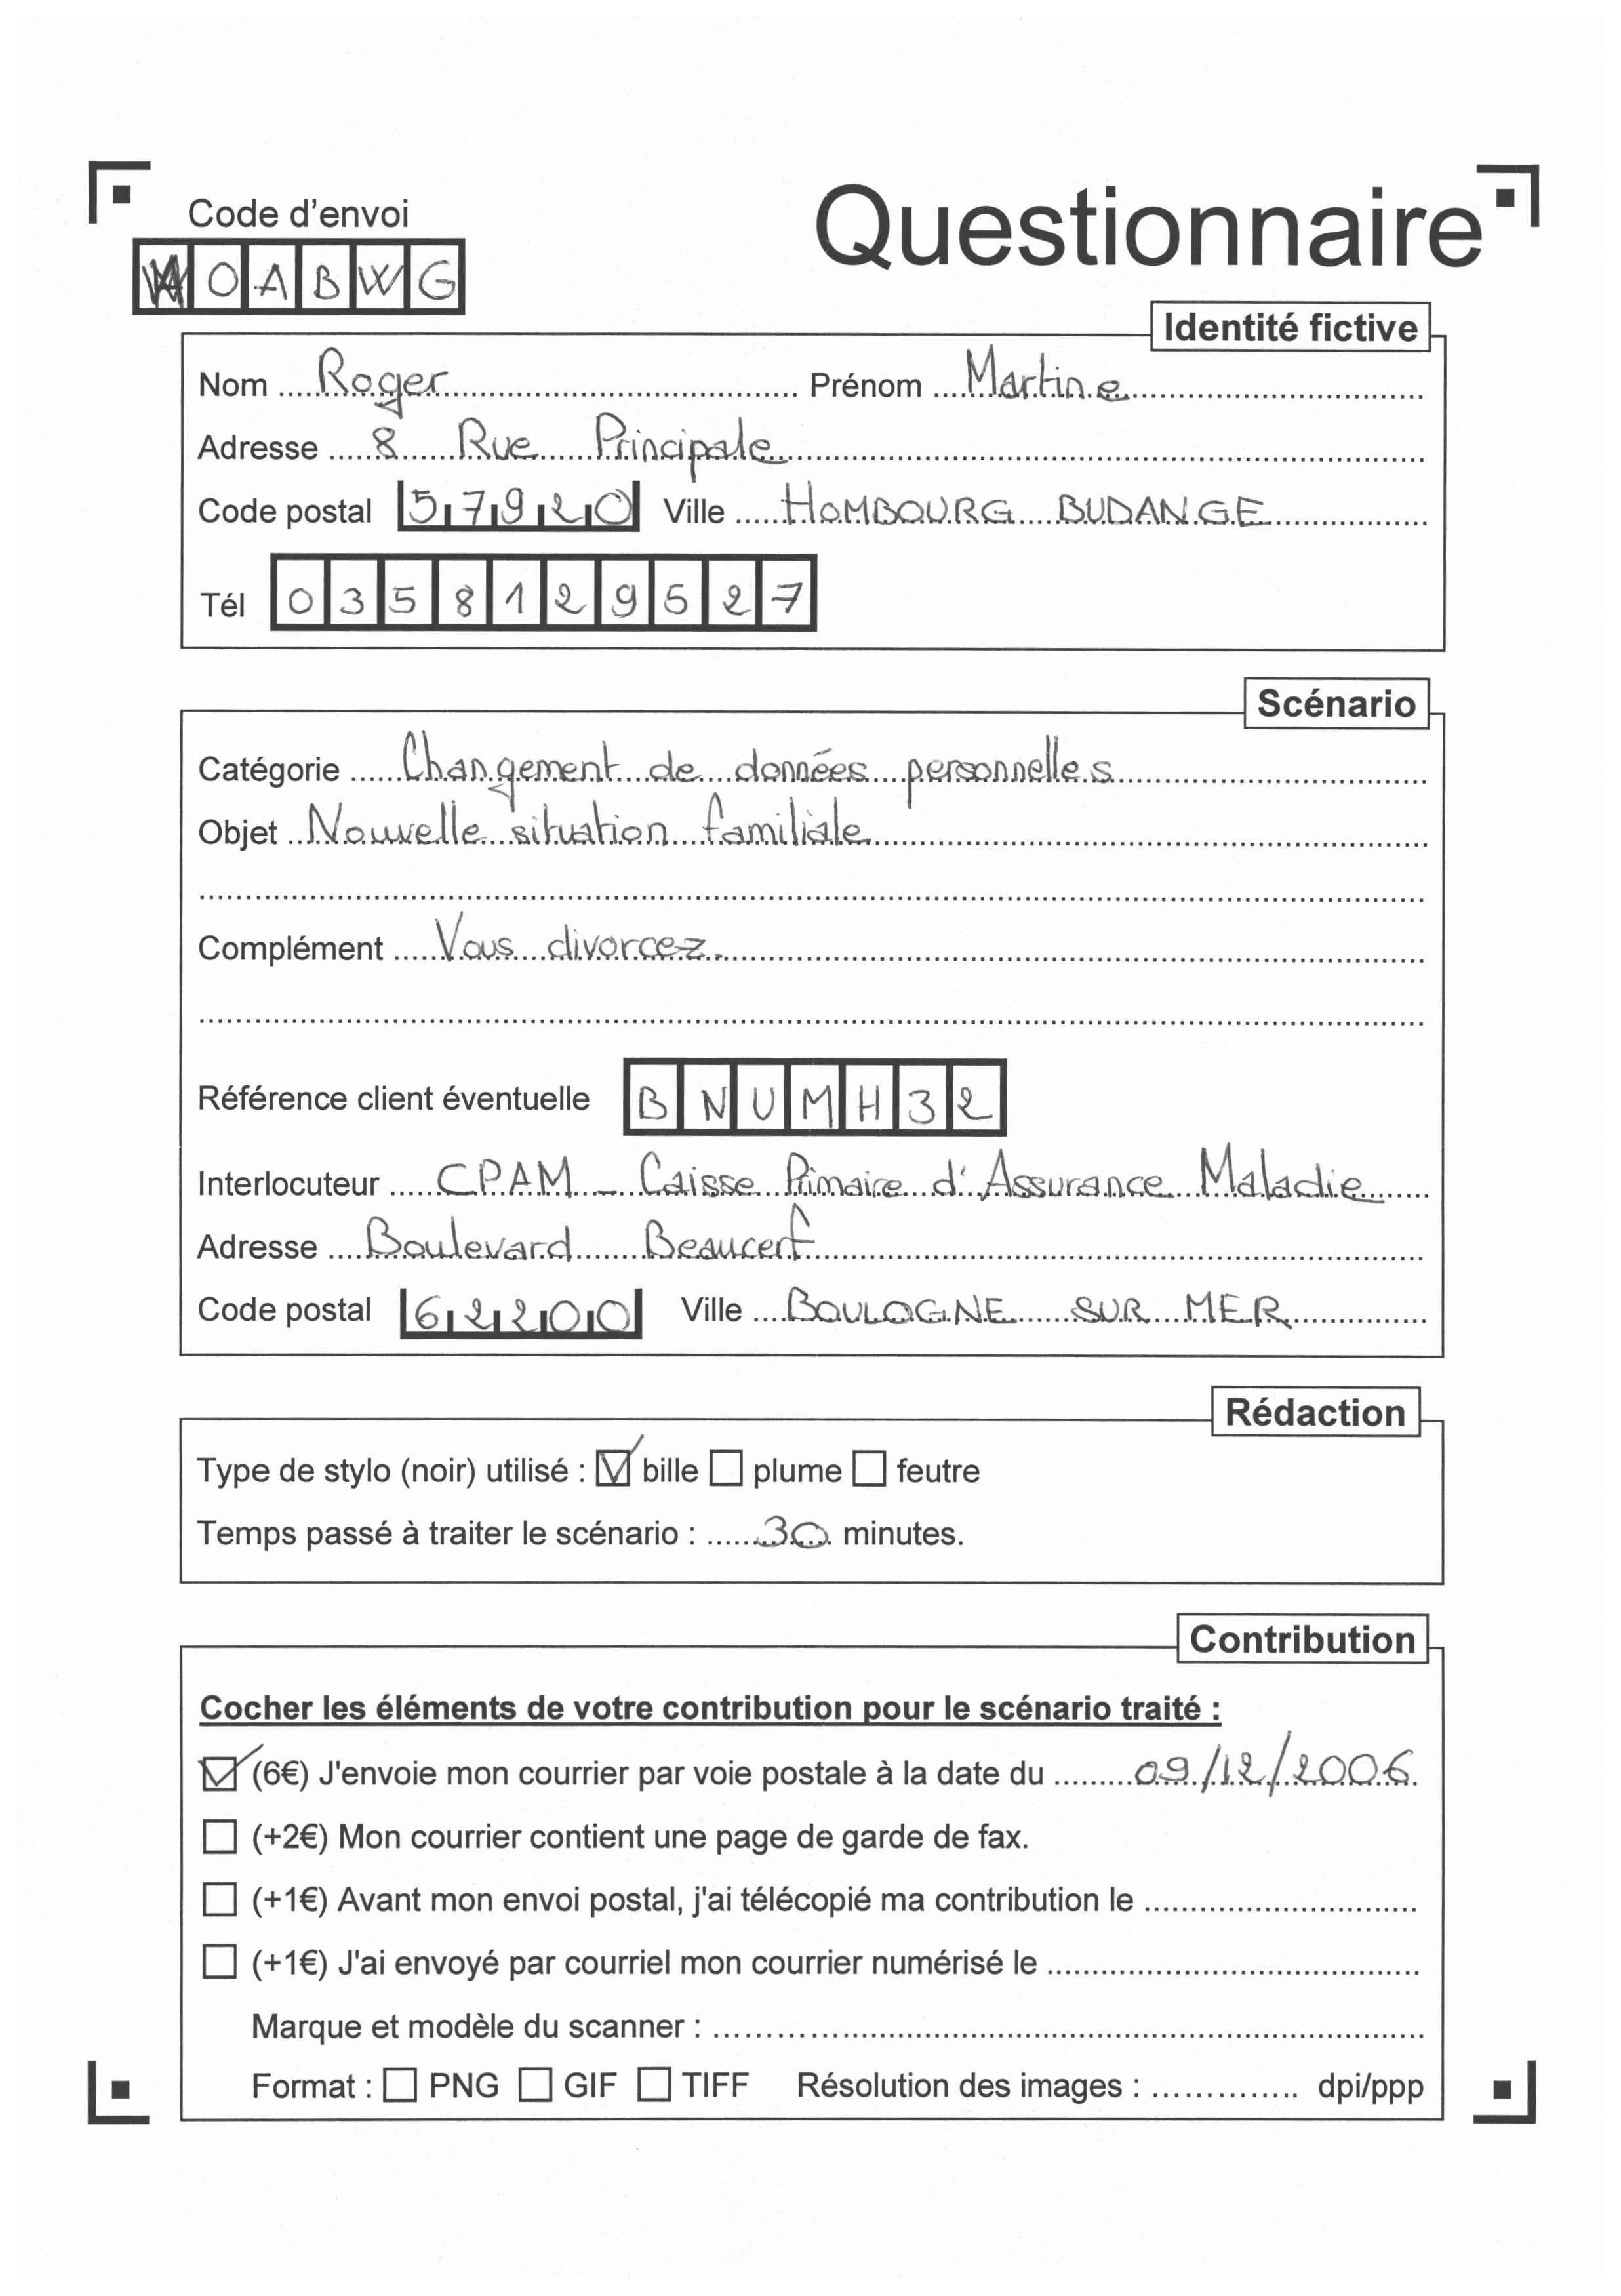 Code d'envoi
Questionnaire
O A B W G
Identité fictive
Nom Roger Prénom Martine
Adresse 8 Rue Principale
Code postal 57920 Ville HOMBOURG BUDANGE
Tél 0358129527
Scénario
Catégorie Changement de données personnelles
Objet Nouvelle situation familiale
Complément Vous divorcez.
Référence client éventuelle BNUMH32
Interlocuteur CPAM - Caisse Primaire d'Assurance Maladie
Adresse Boulevard Beaucerf
Code postal 62200 Ville BOULOGNE SUR MER
Rédaction
Type de stylo (noir) utilisé : ☑ bille ☐ plume ☐ feutre
Temps passé à traiter le scénario : 30 minutes.
Contribution
Cocher les éléments de votre contribution pour le scénario traité :
☑ (6€) J'envoie mon courrier par voie postale à la date du 09/12/2006
☐ (+2€) Mon courrier contient une page de garde de fax.
☐ (+1€) Avant mon envoi postal, j'ai télécopié ma contribution le
☐ (+1€) J'ai envoyé par courriel mon courrier numérisé le
Marque et modèle du scanner :
Format : ☐ PNG ☐ GIF ☐ TIFF Résolution des images : dpi/ppp